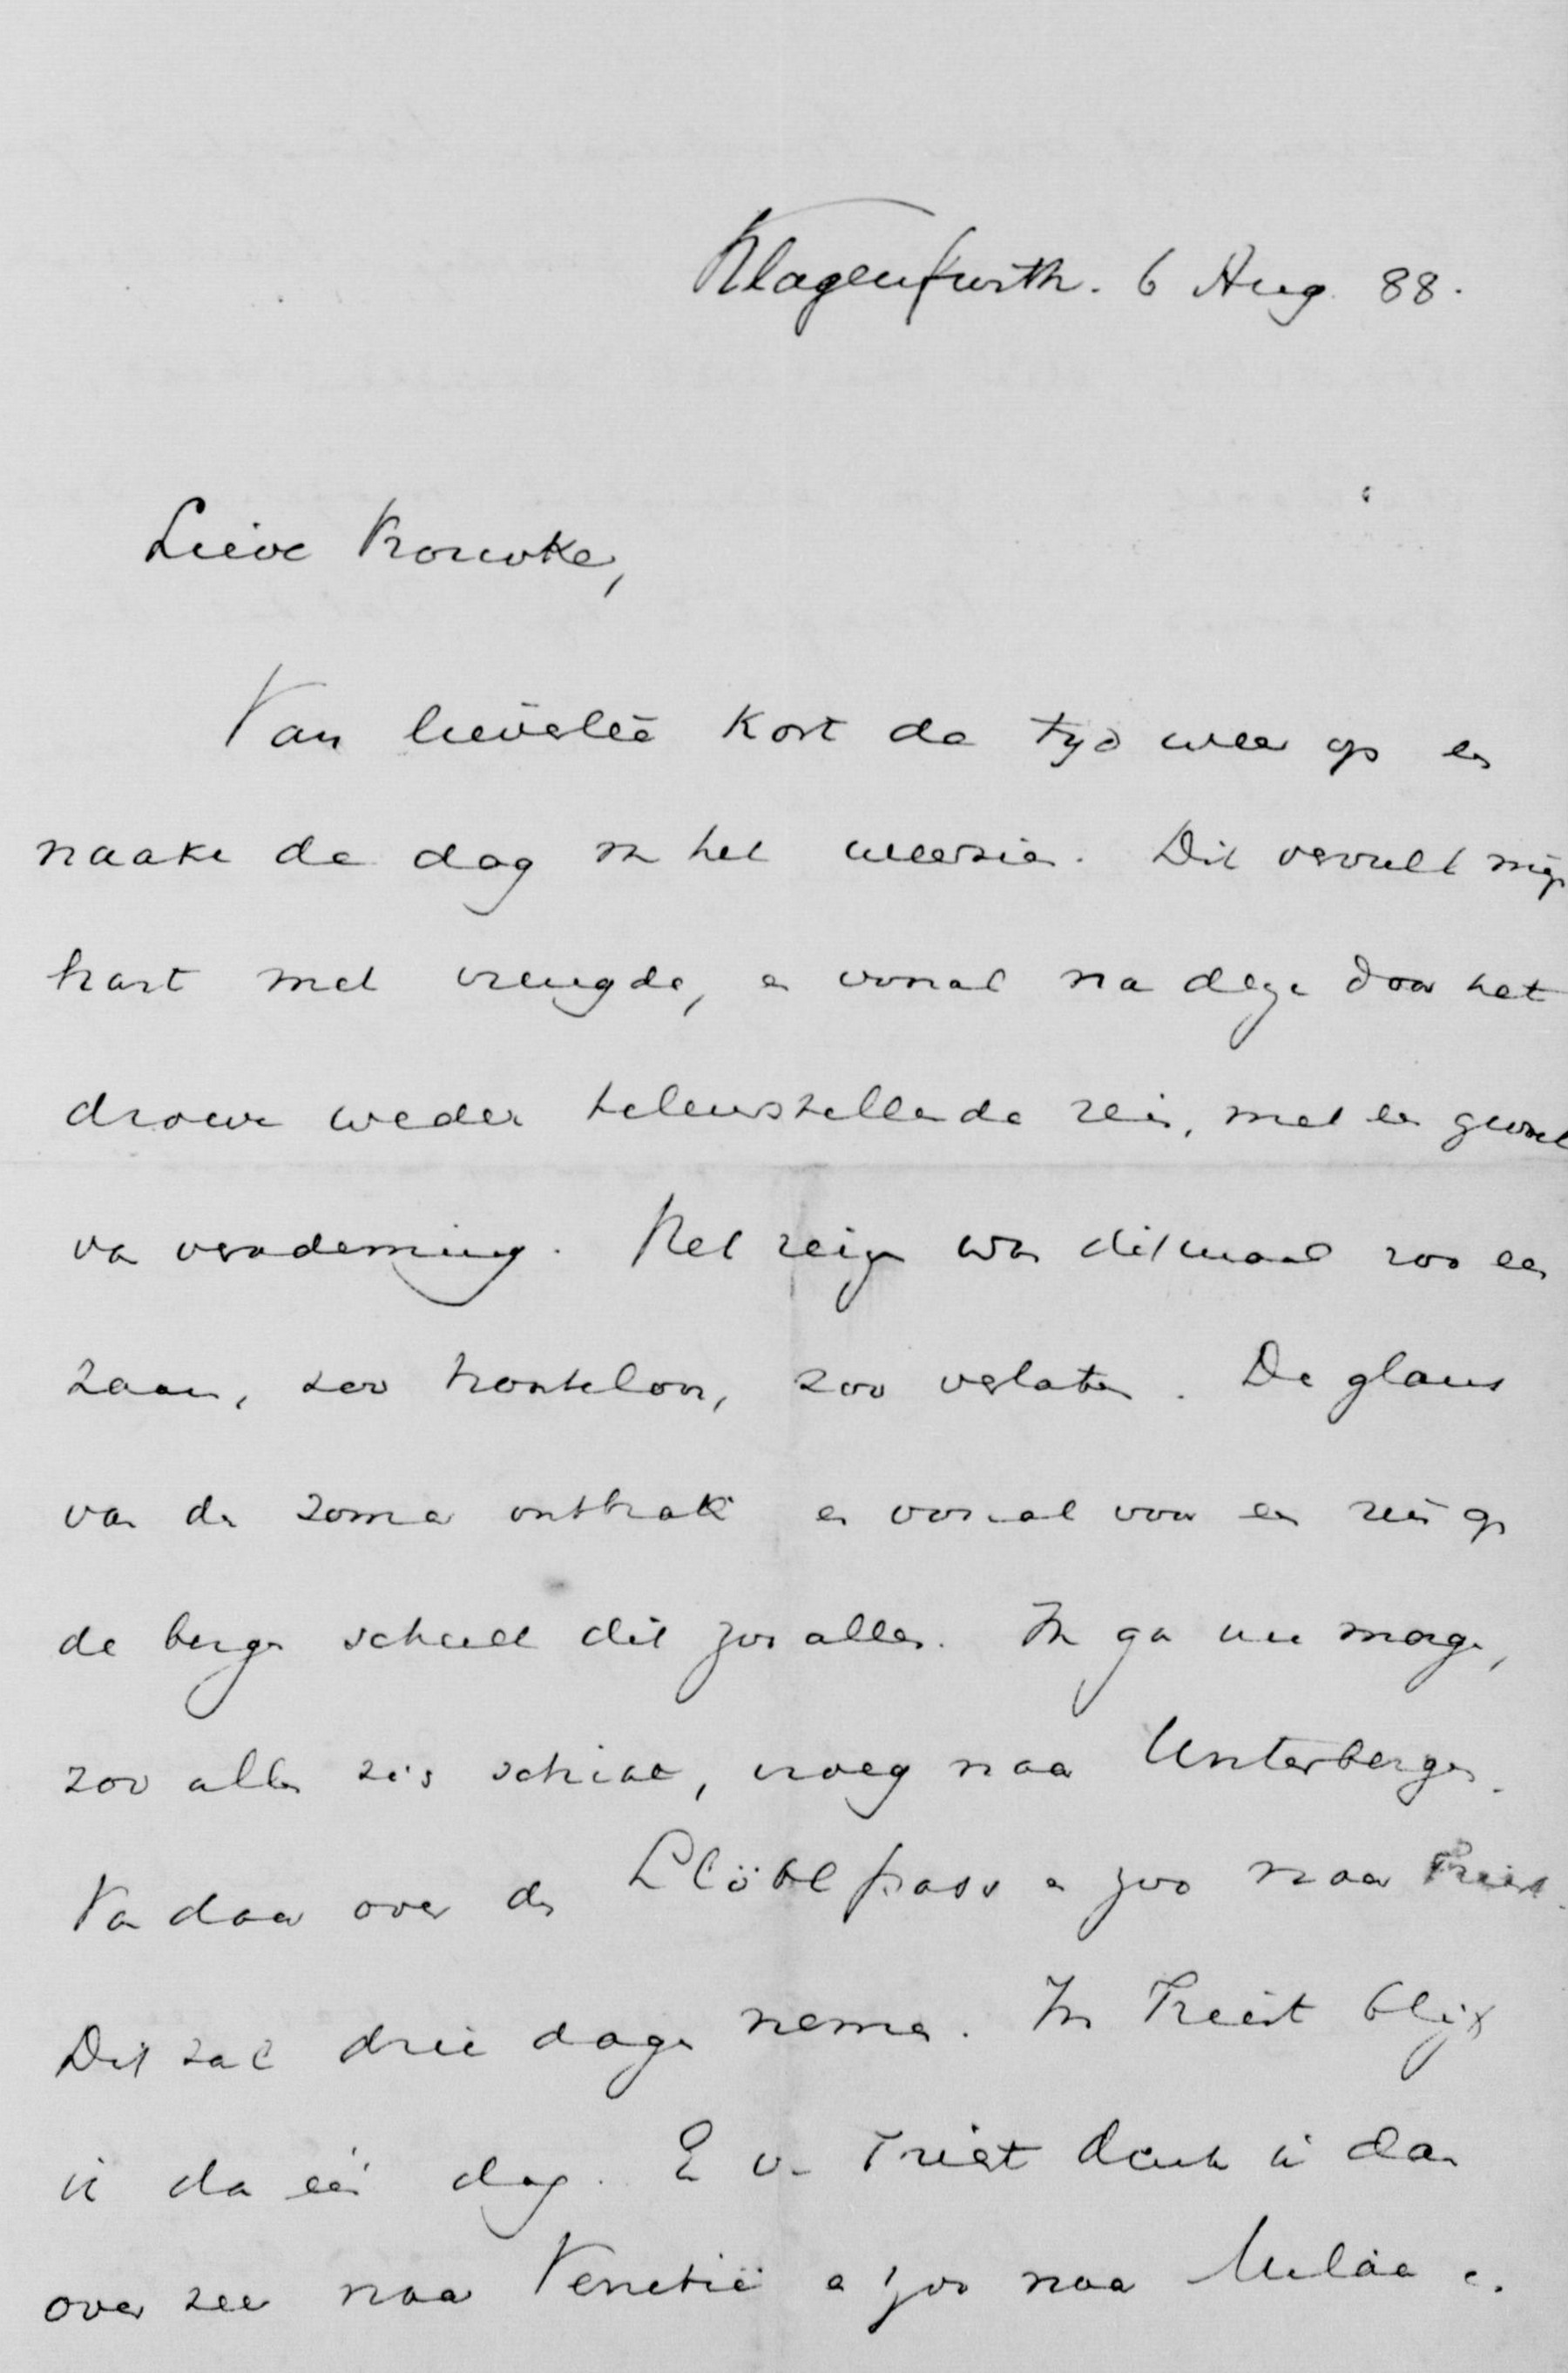 Klagenfurth. 6 Aug. 88.
Lieve Vrouwke,
Van lieverlêe kort de tyd weer op en
naakt de dag v/h het weerzien. Dit vervult mijn
hart met vreugde, en vooral na deze door het
droeve weder teleurstellende reis, met een gevoel
van verademing. Het reizen was ditmaal zoo een
zaam, zoo troosteloos, zoo verlaten. De glans
van de zomer ontbrak en vooral voor een reis op
de bergen scheelt dit zoo alles. Ik ga nu morgen,
zoo alles zis schikt, vroeg naar Unterbergen.
Van daar over den Llöbl pass en zoo naar Triëst.
Dit zal drie dagen nemen. In Triëst blijf
ik dan één dag. En van Triest denk ik dan
over zee naar Venetië en zoo naar Milaan